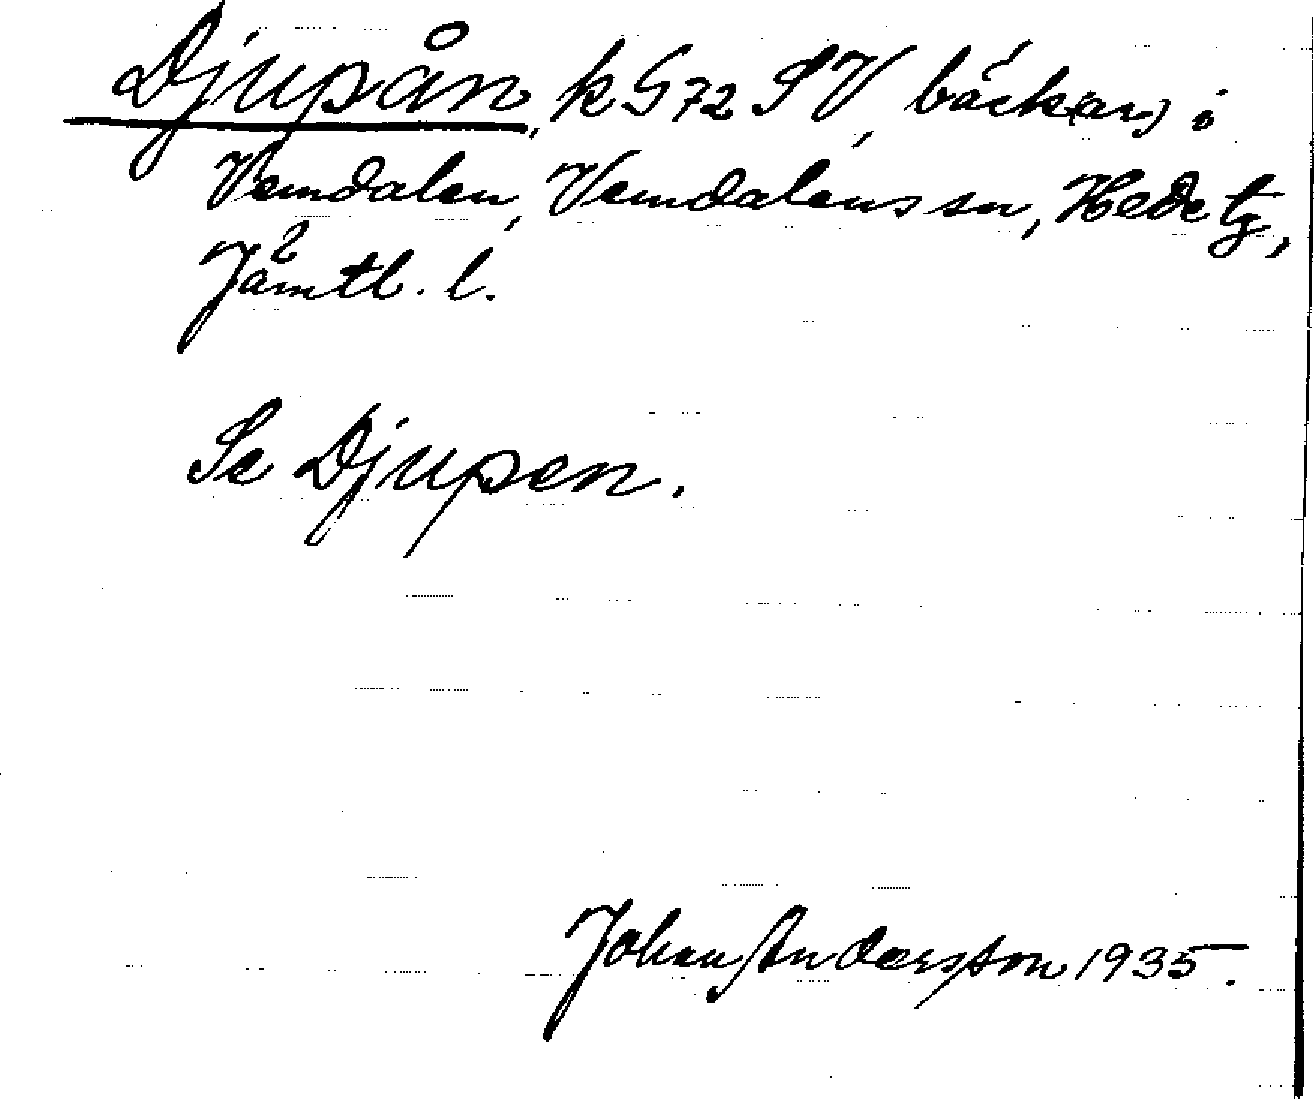 Djupån, k G 72 SV, bäck(ar) i
Vemdalen, Vemdalens sn, Hede tg,
Jämtl. l.
Se Djupen.
Johan Andersson 1935.